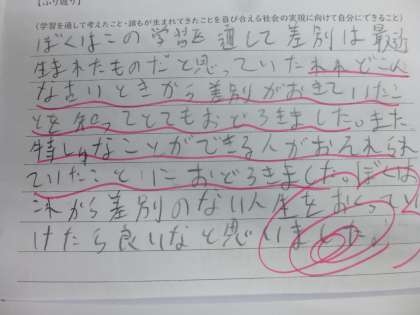 【ふり返り】
(学習を通して考えたこと・誰もが生まれてきたことを喜び合える社会の実現に向けて自分にできること)
ぼくはこの学習を通して差別は最近
生まれたものだと思っていたけれどこん
ときから差別がおきていたこ
とを知ってとてもおどろきました。また
特しゅなことができる人がおそれられ
ていたことにおどろきました。ぼくは
これから差別のない人生をおくってい
けたら良いなと思いました。